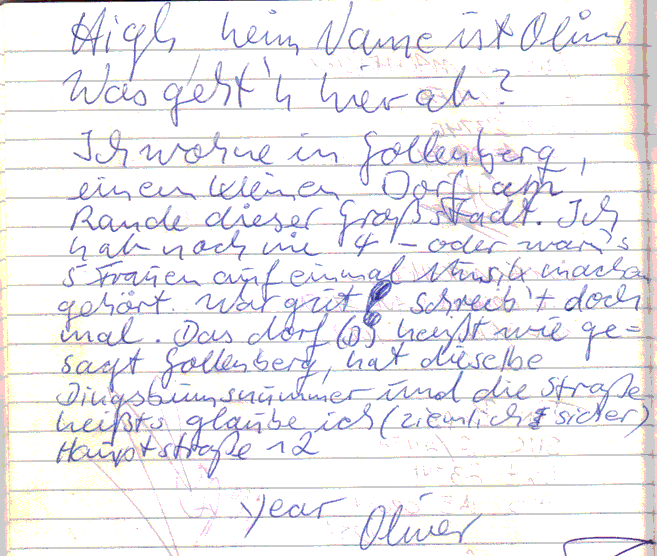 High, mein Name ist Oliver
Was geht'n hier ab?
Ich wohne in Gollenberg,
einem kleinen Dorf am
Rande dieser Großstadt. Ich
hab noch nie 4 - oder war's
5 Frauen auf einmal Musik machen
gehört. War gut! Schreib't doch
mal. Das dorf (D) heißt wie ge=
sagt Gollenberg, hat dieselbe
Dingsbumsnummer und die Straße
heißts glaube ich (ziemlich sicher)
Hauptstraße 12
year
Oliver